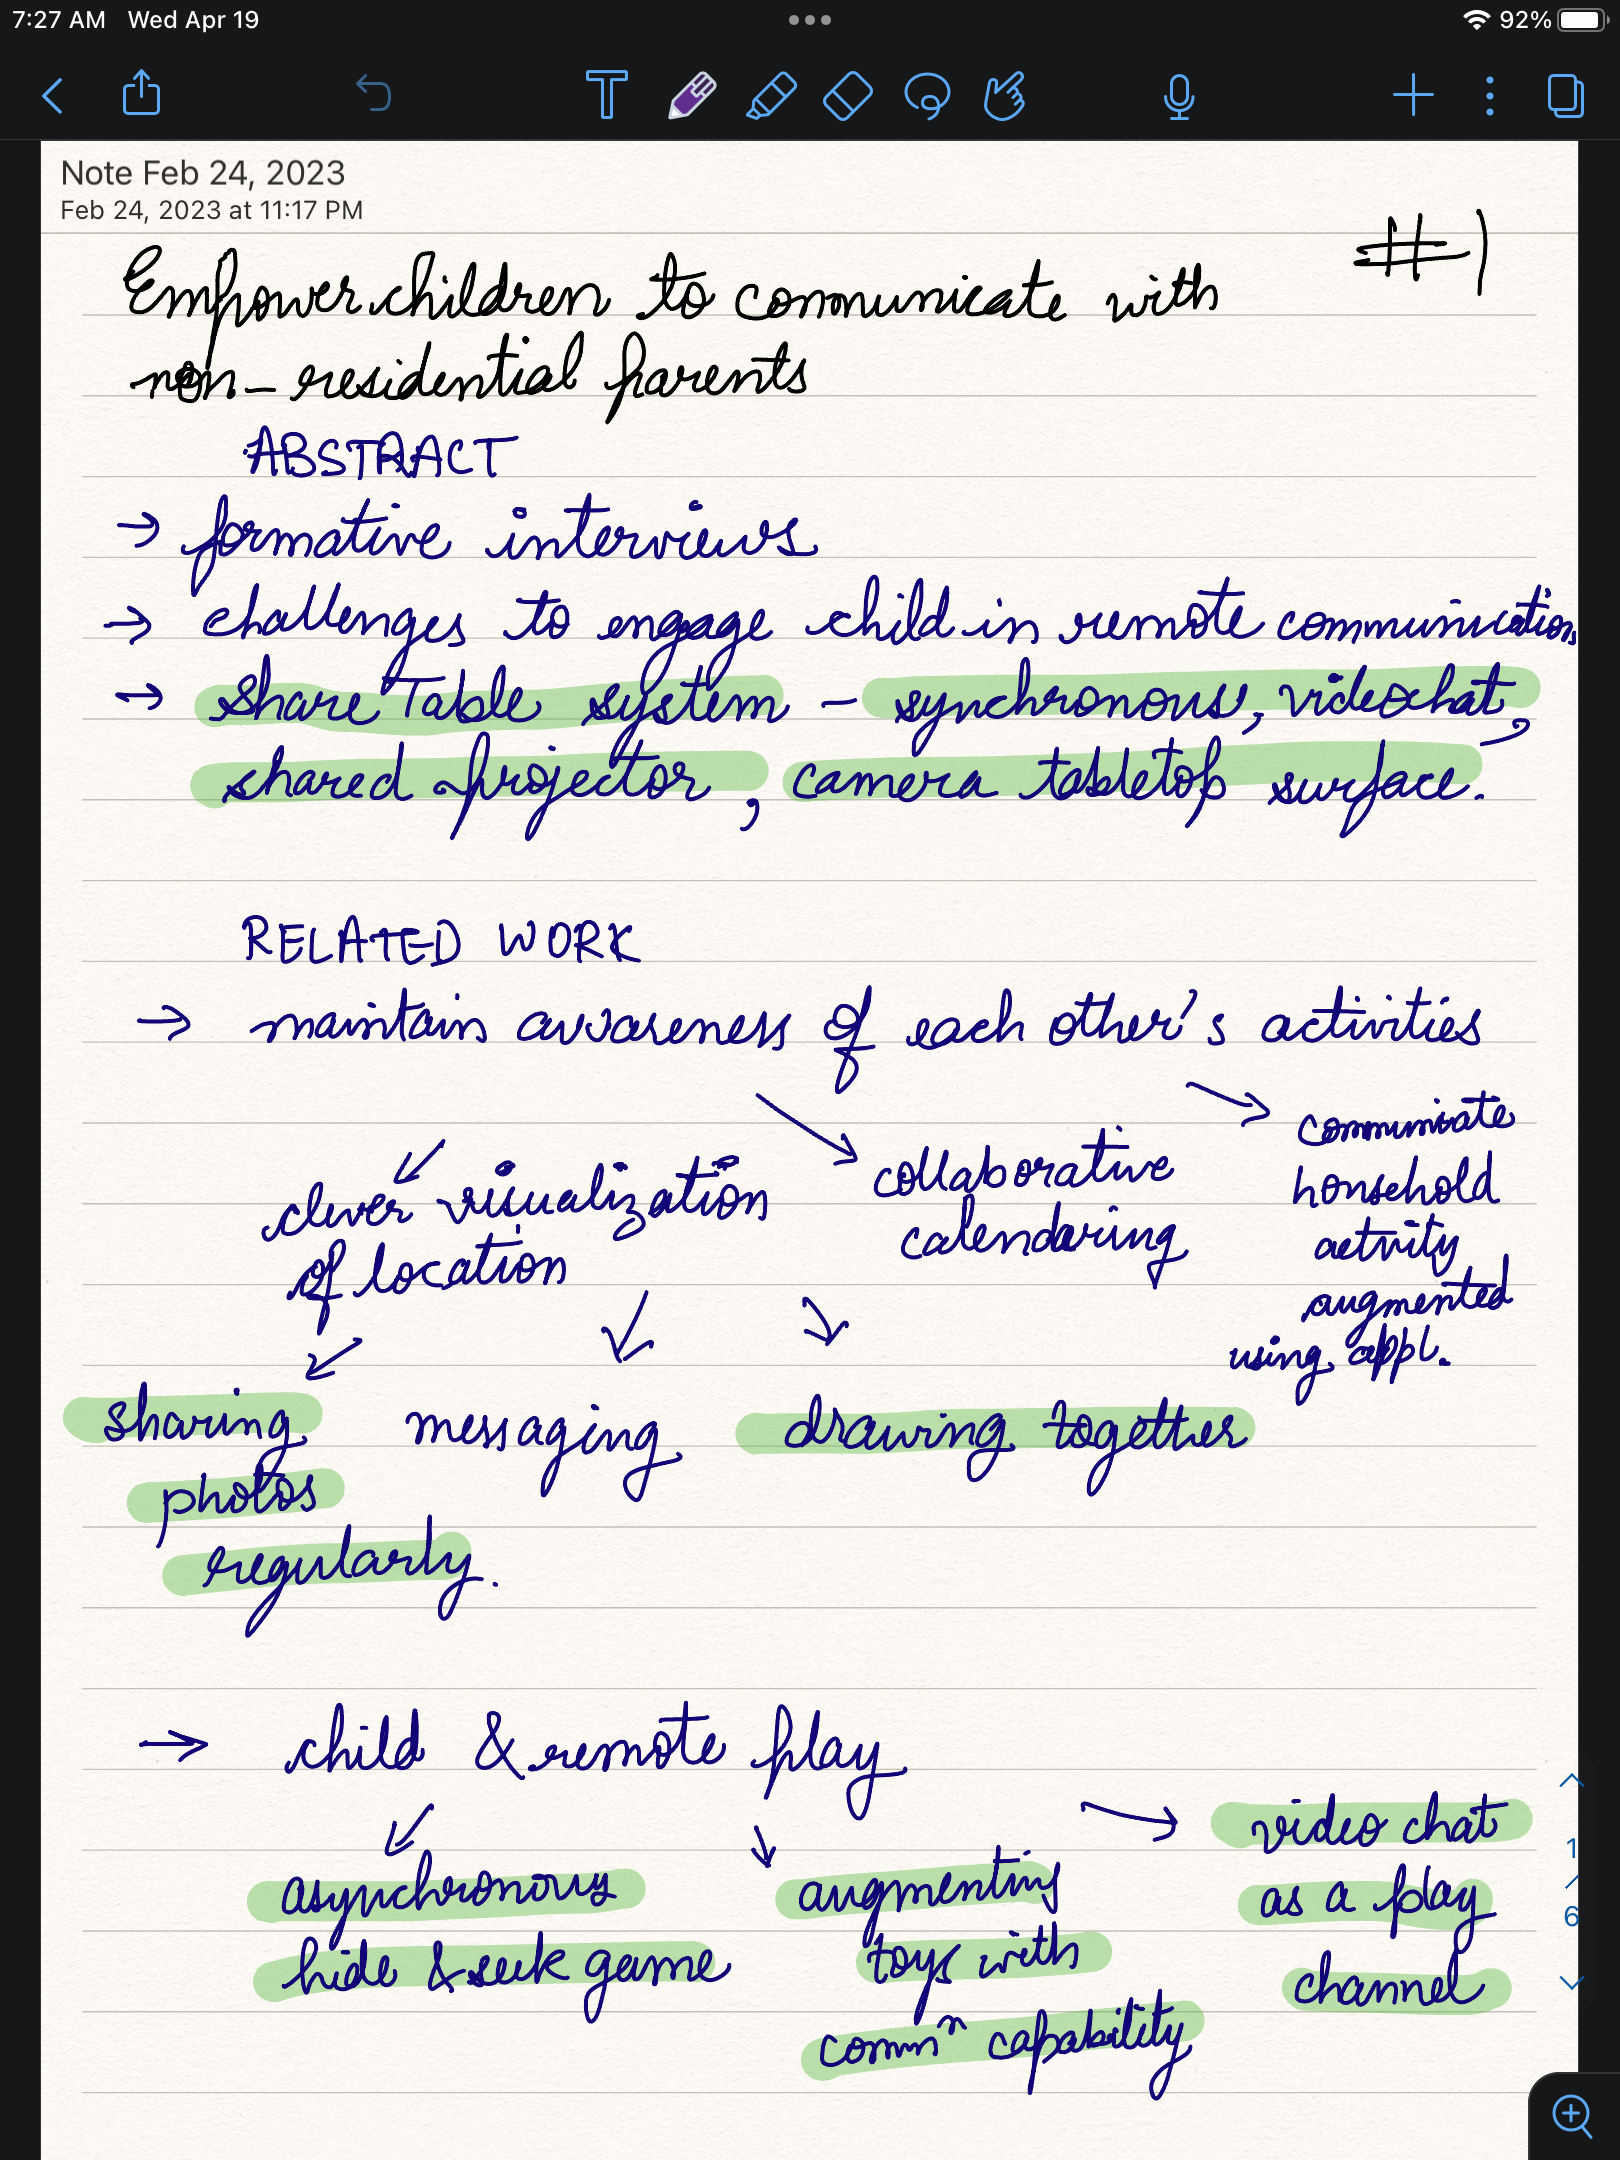 7:27 AM Wed Apr 19
92%
Note Feb 24, 2023
Feb 24, 2023 at 11:17 PM
#1
Empower children to communicate with
non-residential parents
ABSTRACT
→ formative interviews
→ challenges to engage child in remote communication
→ Share Table system - synchronous, videochat,
shared projector, camera tabletop surface.
RELATED WORK
→ maintain awareness of each other's activities
clever visualization
of location
collaborative
calendaring
communicate
household
activity
augmented
using appl.
sharing
photos
regularly.
messaging
drawing together
→ child & remote play
asynchronous
hide & seek game
augmenting
toys with
commⁿ capability
video chat
as a play
channel
1
/
6